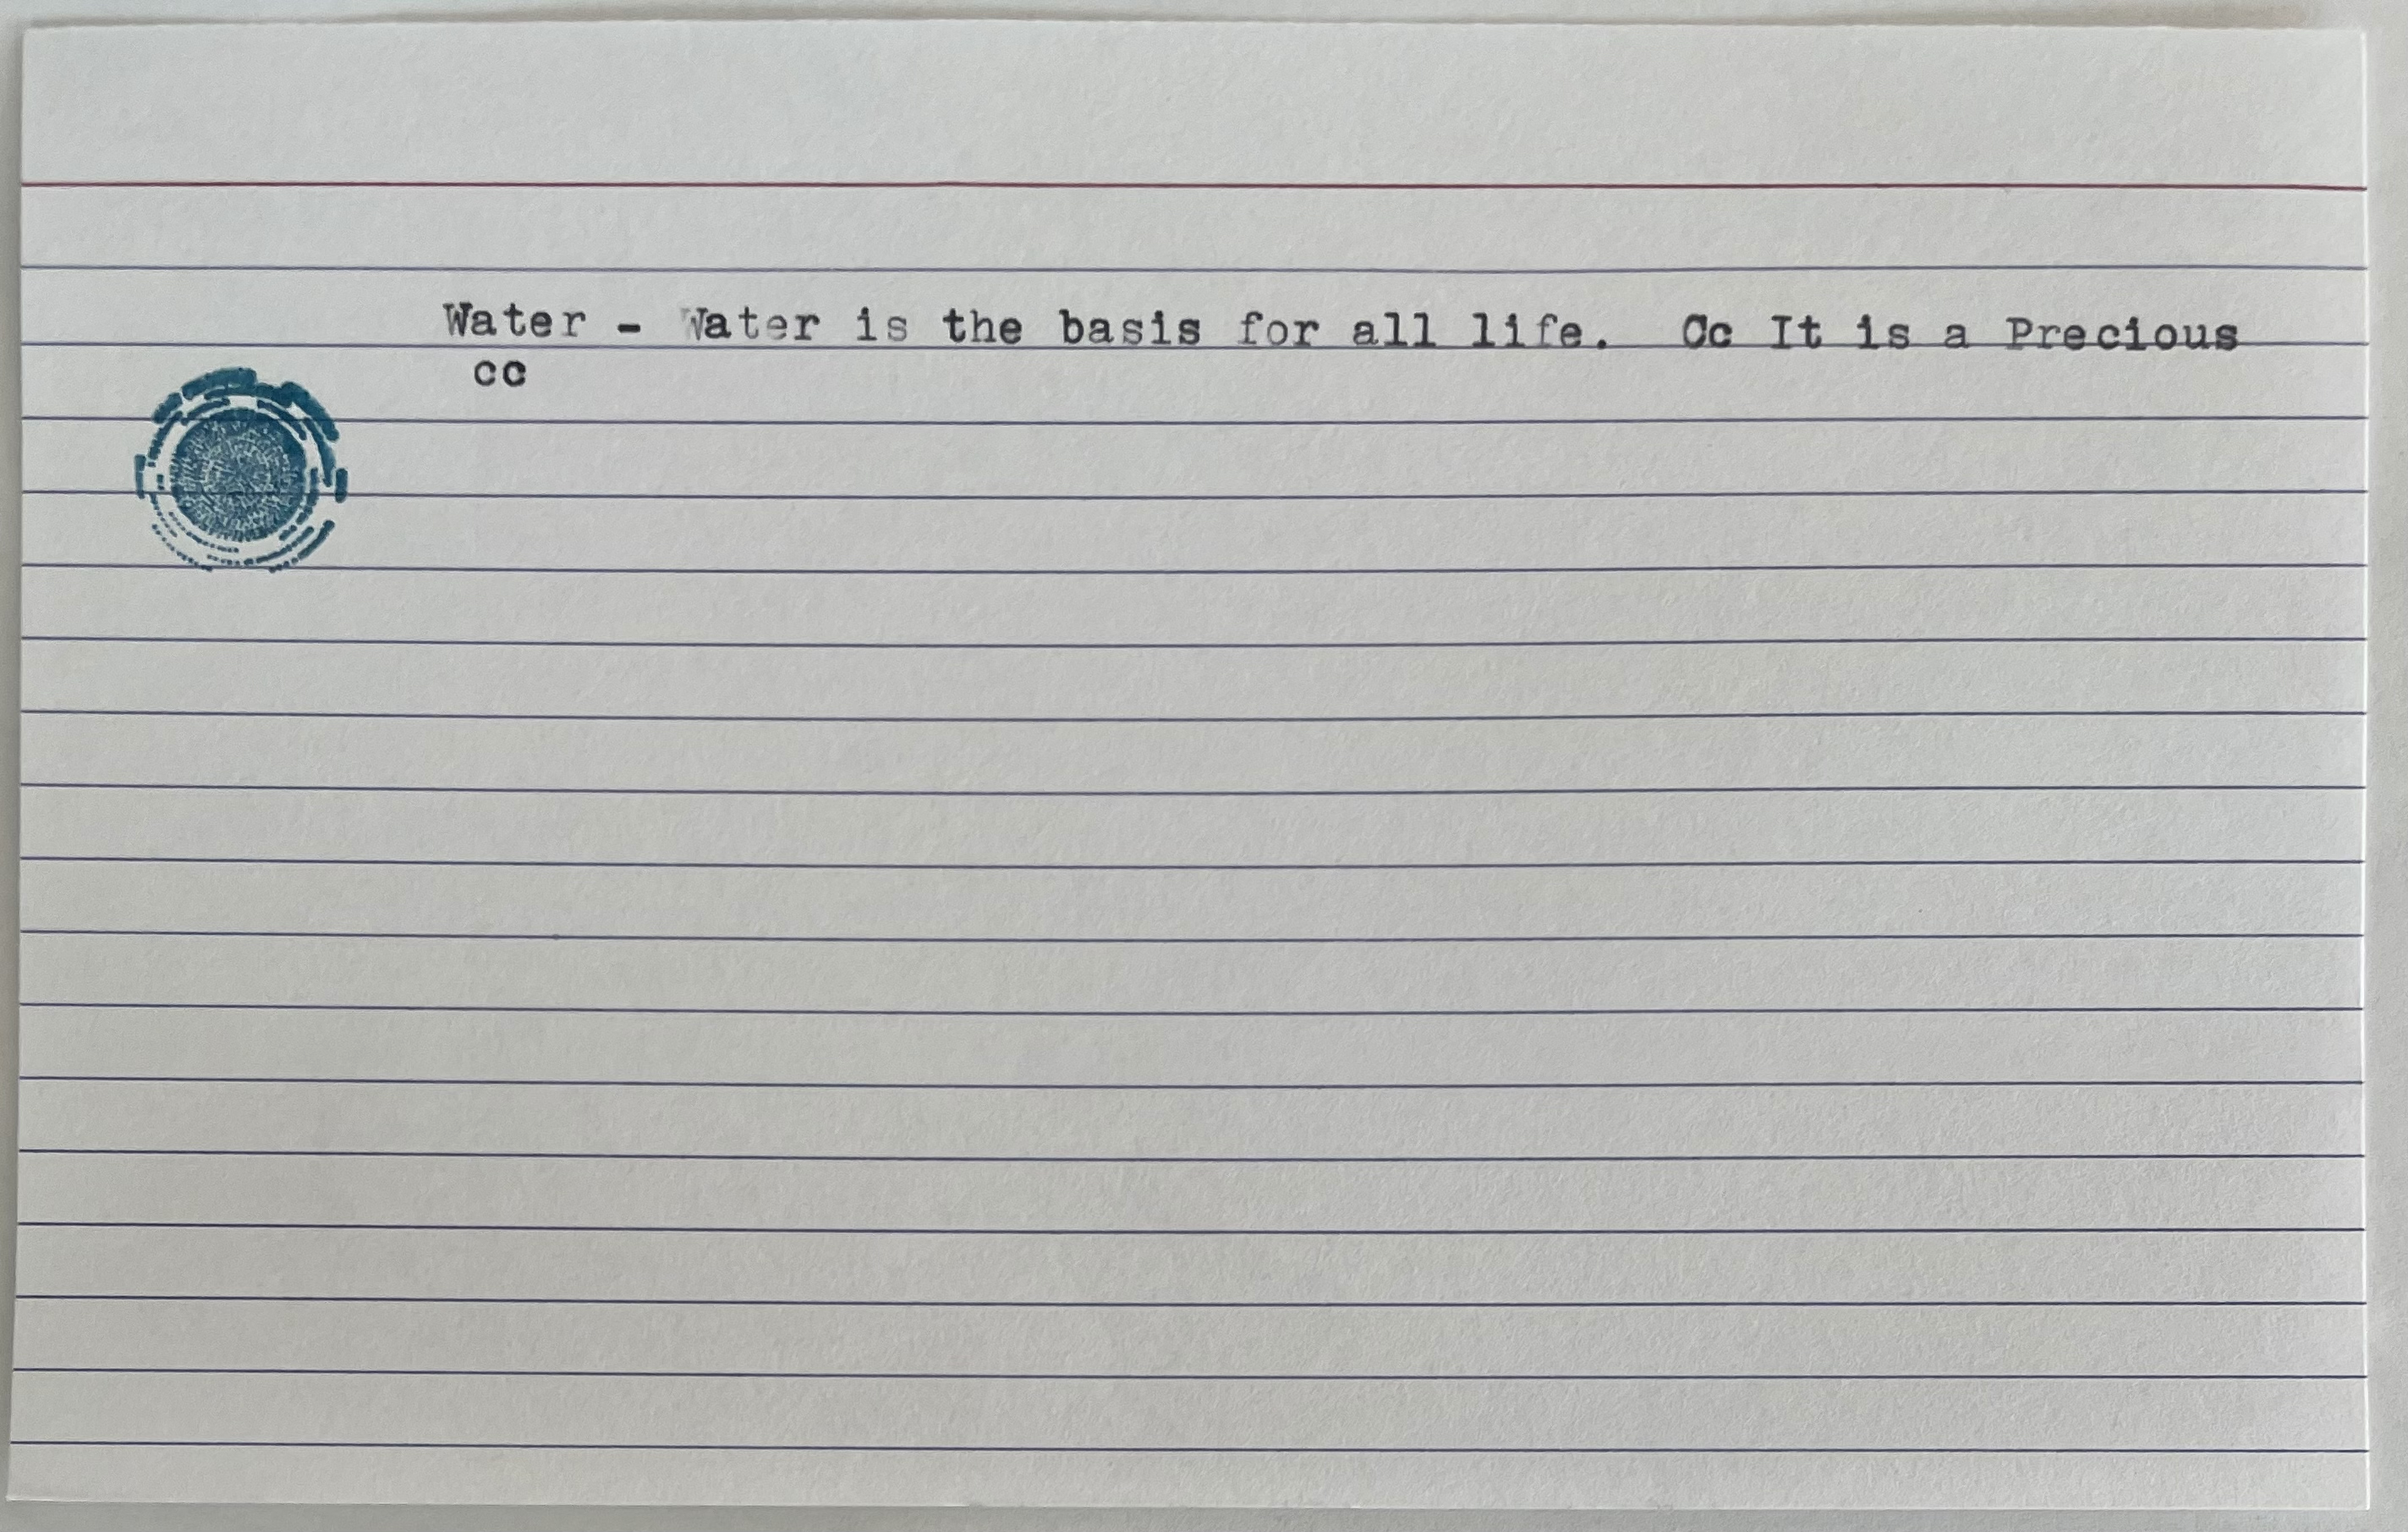 Water - Water is the basis for all life.  Cc It is a Precious
cc